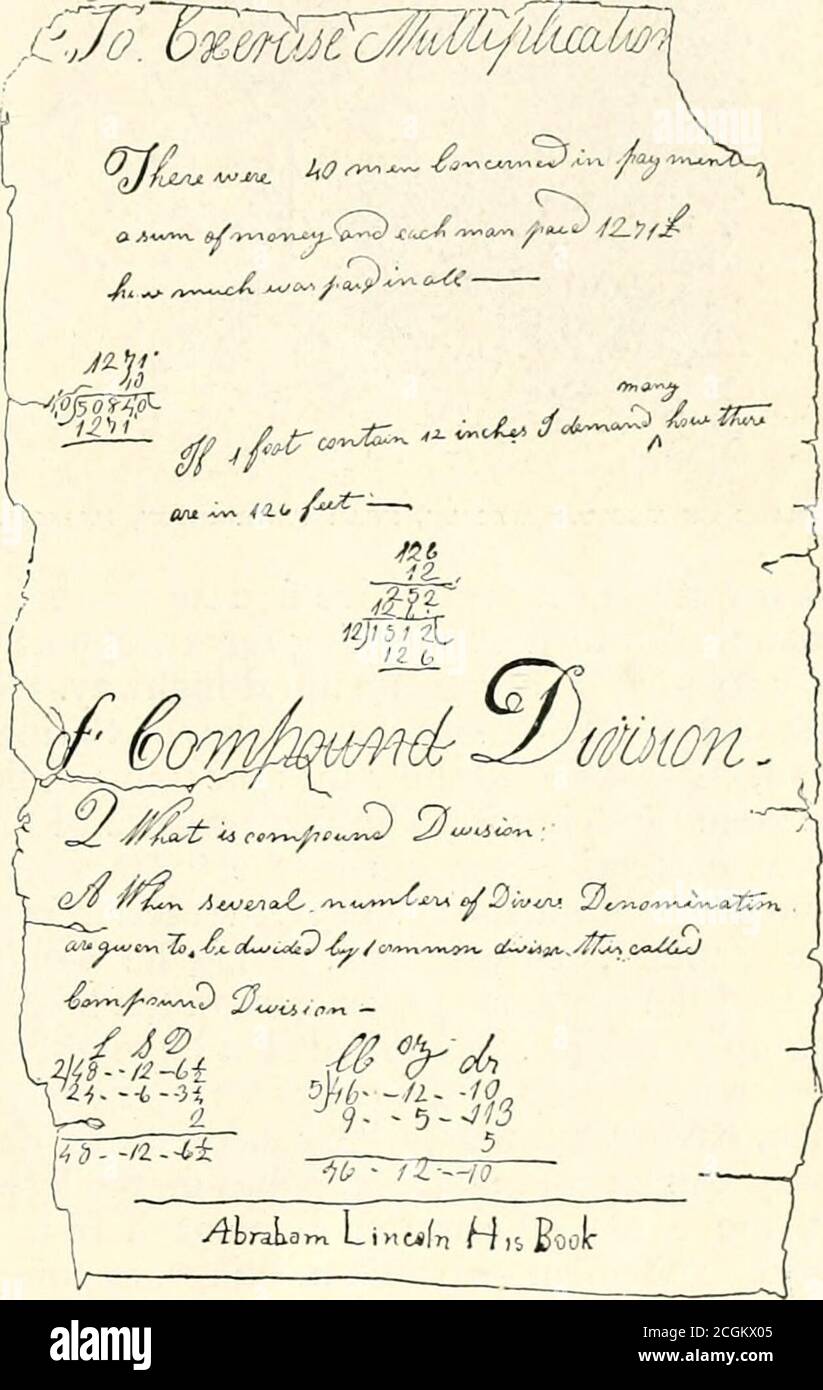 To Exercise Multiplication
There were 40 men Concerned in payment
a sum of money and each man paid 1271£
how much was paid in all —
1271
40
40)50840(
1271
many
If 1 foot contain 12 inches I demand ^ how there
are in 126 feet —
126
12
252
126
12)1512(
126
of Compound Division.
Q What is compound Division:
A When several numbers of Divers Denomination
are given to be divided by 1 common divisor this called
Compound Division —
£ S D
2)48--12-6½
24--6-3¼
2
48--12-6½
lb oz dr
5)46--12--10
9--5-113
5
46-12--10
Abraham Lincoln His Book
alamy
Image ID: 2CGKX05
www.alamy.com